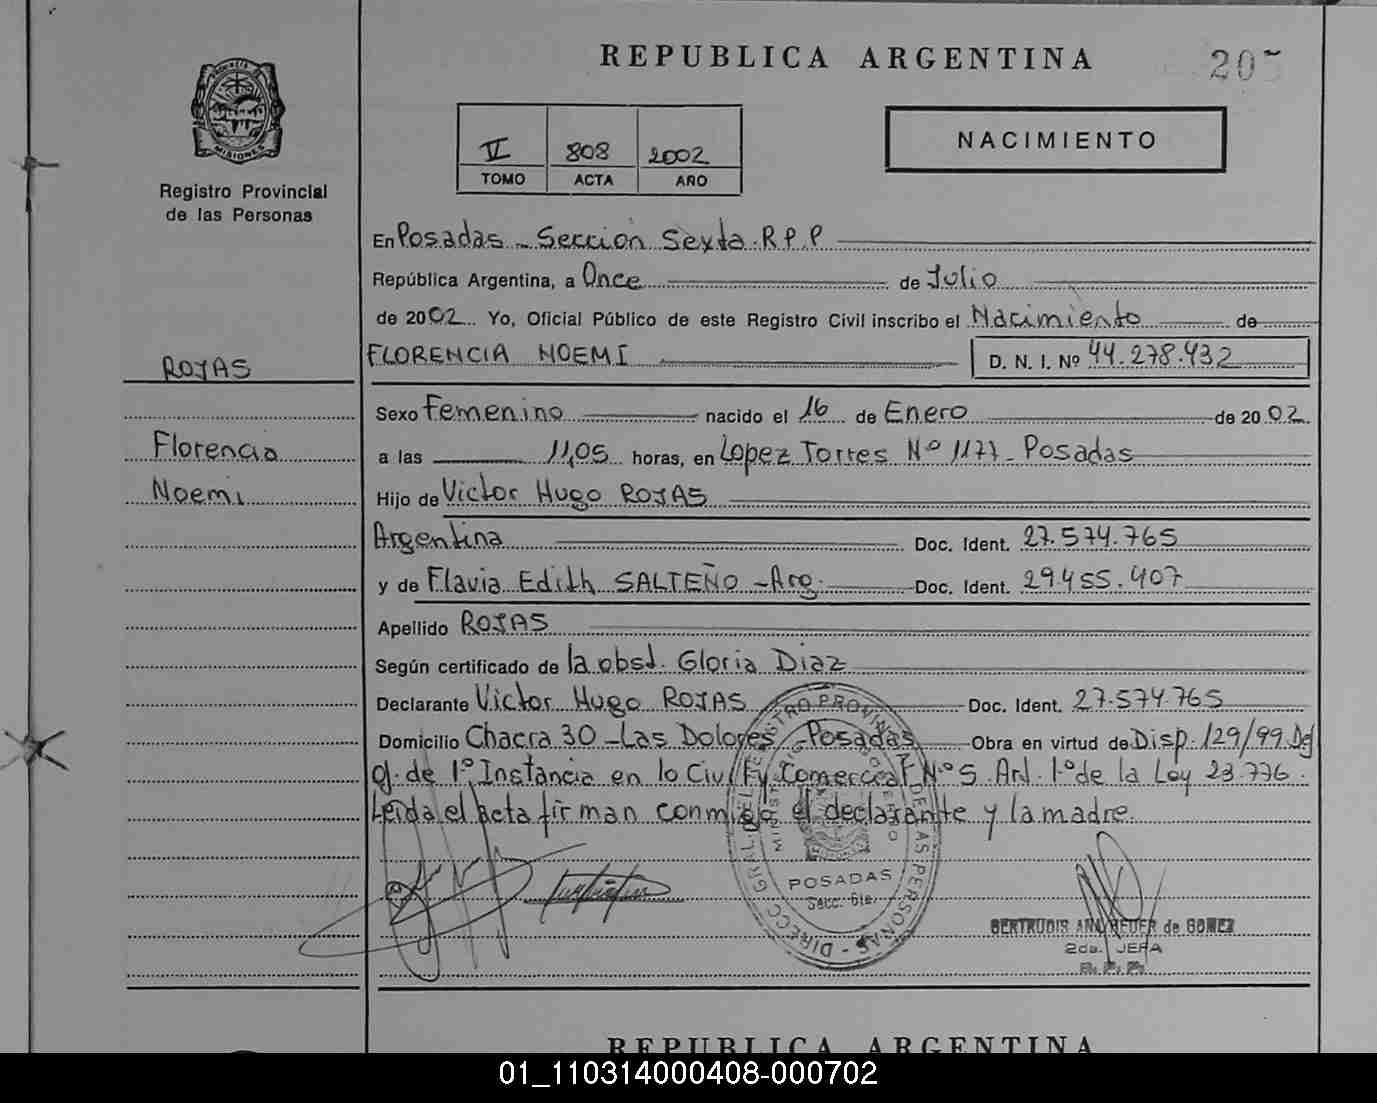 REPUBLICA ARGENTINA
PROVINCIA DE
MISIONES
Registro Provincial
de las Personas
V 808 2002
TOMO ACTA AÑO
NACIMIENTO
En Posadas - Sección Sexta R.P.P
República Argentina, a Once de Julio
de 2002 Yo, Oficial Público de este Registro Civil inscribo el Nacimiento de
ROJAS
FLORENCIA NOEMI D. N. I. Nº 44.278.432
Sexo Femenino nacido el 16 de Enero de 2002
Florencia
a las 11,05 horas, en Lopez Torres Nº 1177 - Posadas
Noemi
Hijo de Victor Hugo ROJAS
Argentina Doc. Ident. 27.574.765
y de Flavia Edith SALTEÑO - Arg. Doc. Ident. 29.455.407
Apellido ROJAS
Según certificado de la obst. Gloria Diaz
Declarante Victor Hugo ROJAS Doc. Ident. 27.574.765
Domicilio Chacra 30 - Las Dolores - Posadas Obra en virtud de Disp. 129/99
de 1º Instancia en lo Civil y Comercial Nº 5. Art. 1º de la Ley 23.776.
Leida el acta firman conmigo el declarante y la madre.
DIRECC. GRAL. DEL REGISTRO PROVINCIAL DE LAS PERSONAS
POSADAS
Secc. 6ta.
GERTRUDIS ANA de GOMEZ
2da. JEFA
R. P. P.
REPUBLICA ARGENTINA
01_110314000408-000702